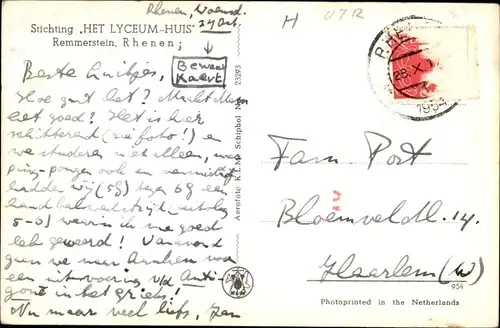 Stichting „HET LYCEUM-HUIS"
Remmerstein, Rhenen;
Rhenen, Woensd.
24 Oct.
Bewaar
Kaart
Beste Luitjes,
Hoe gaat het? Maakt
het goed? Het is hier
schitterend (zie foto!) en
we studeren niet alleen, maar
ping-pongen ook en vanmiddag
hadden wij (5g) tegen 6g een
handbalwedstrijd
5-6) waarin we goed
heb gekeerd! Vanavond
gaan we naar Arnhem voor
een uitvoering v/d Anti-
gone in het grieks!
Nu maar veel liefs, Jan
Aerofoto K.L.M. Schiphol No. 23293
H
U712
RHE
28.X.
1954
Fam. Port
Bloemveldl. 14.
Haarlem (N)
954
Photoprinted in the Netherlands